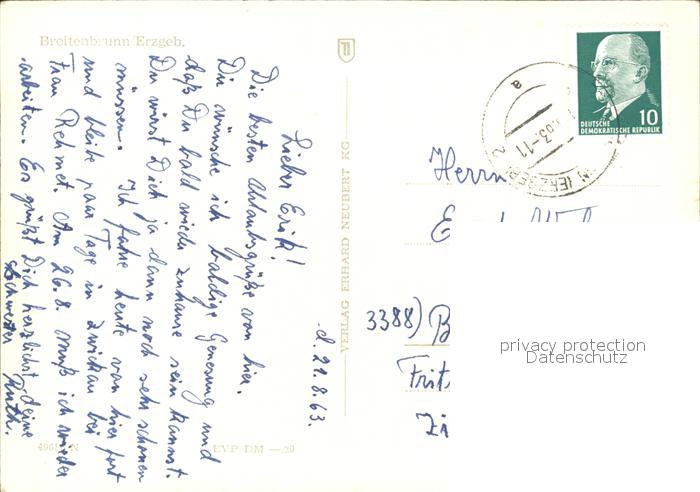 Breitenbrunn Erzgeb.
d. 21.8.63.
Lieber Erich!
Die besten Urlaubsgrüße von hier.
Dir wünsche ich baldige Genesung und
daß Du bald wieder zuhause sein kannst.
Du wirst Dich ja dann noch sehr schonen
müssen. Ich fahre heute von hier fort
und bleibe paar Tage in Zwickau bei
Frau Rehmet. Am 26.8. muß ich wieder
arbeiten. Es grüßt Dich herzlichst deine
Schwester Ruth.
EVP DM —.20
VERLAG ERHARD NEUBERT KG.
DEUTSCHE
DEMOKRATISCHE REPUBLIK
10
a
63-11
(ERZGEB)
Herrn
E
3388) B
Frit
Zi
privacy protection
Datenschutz